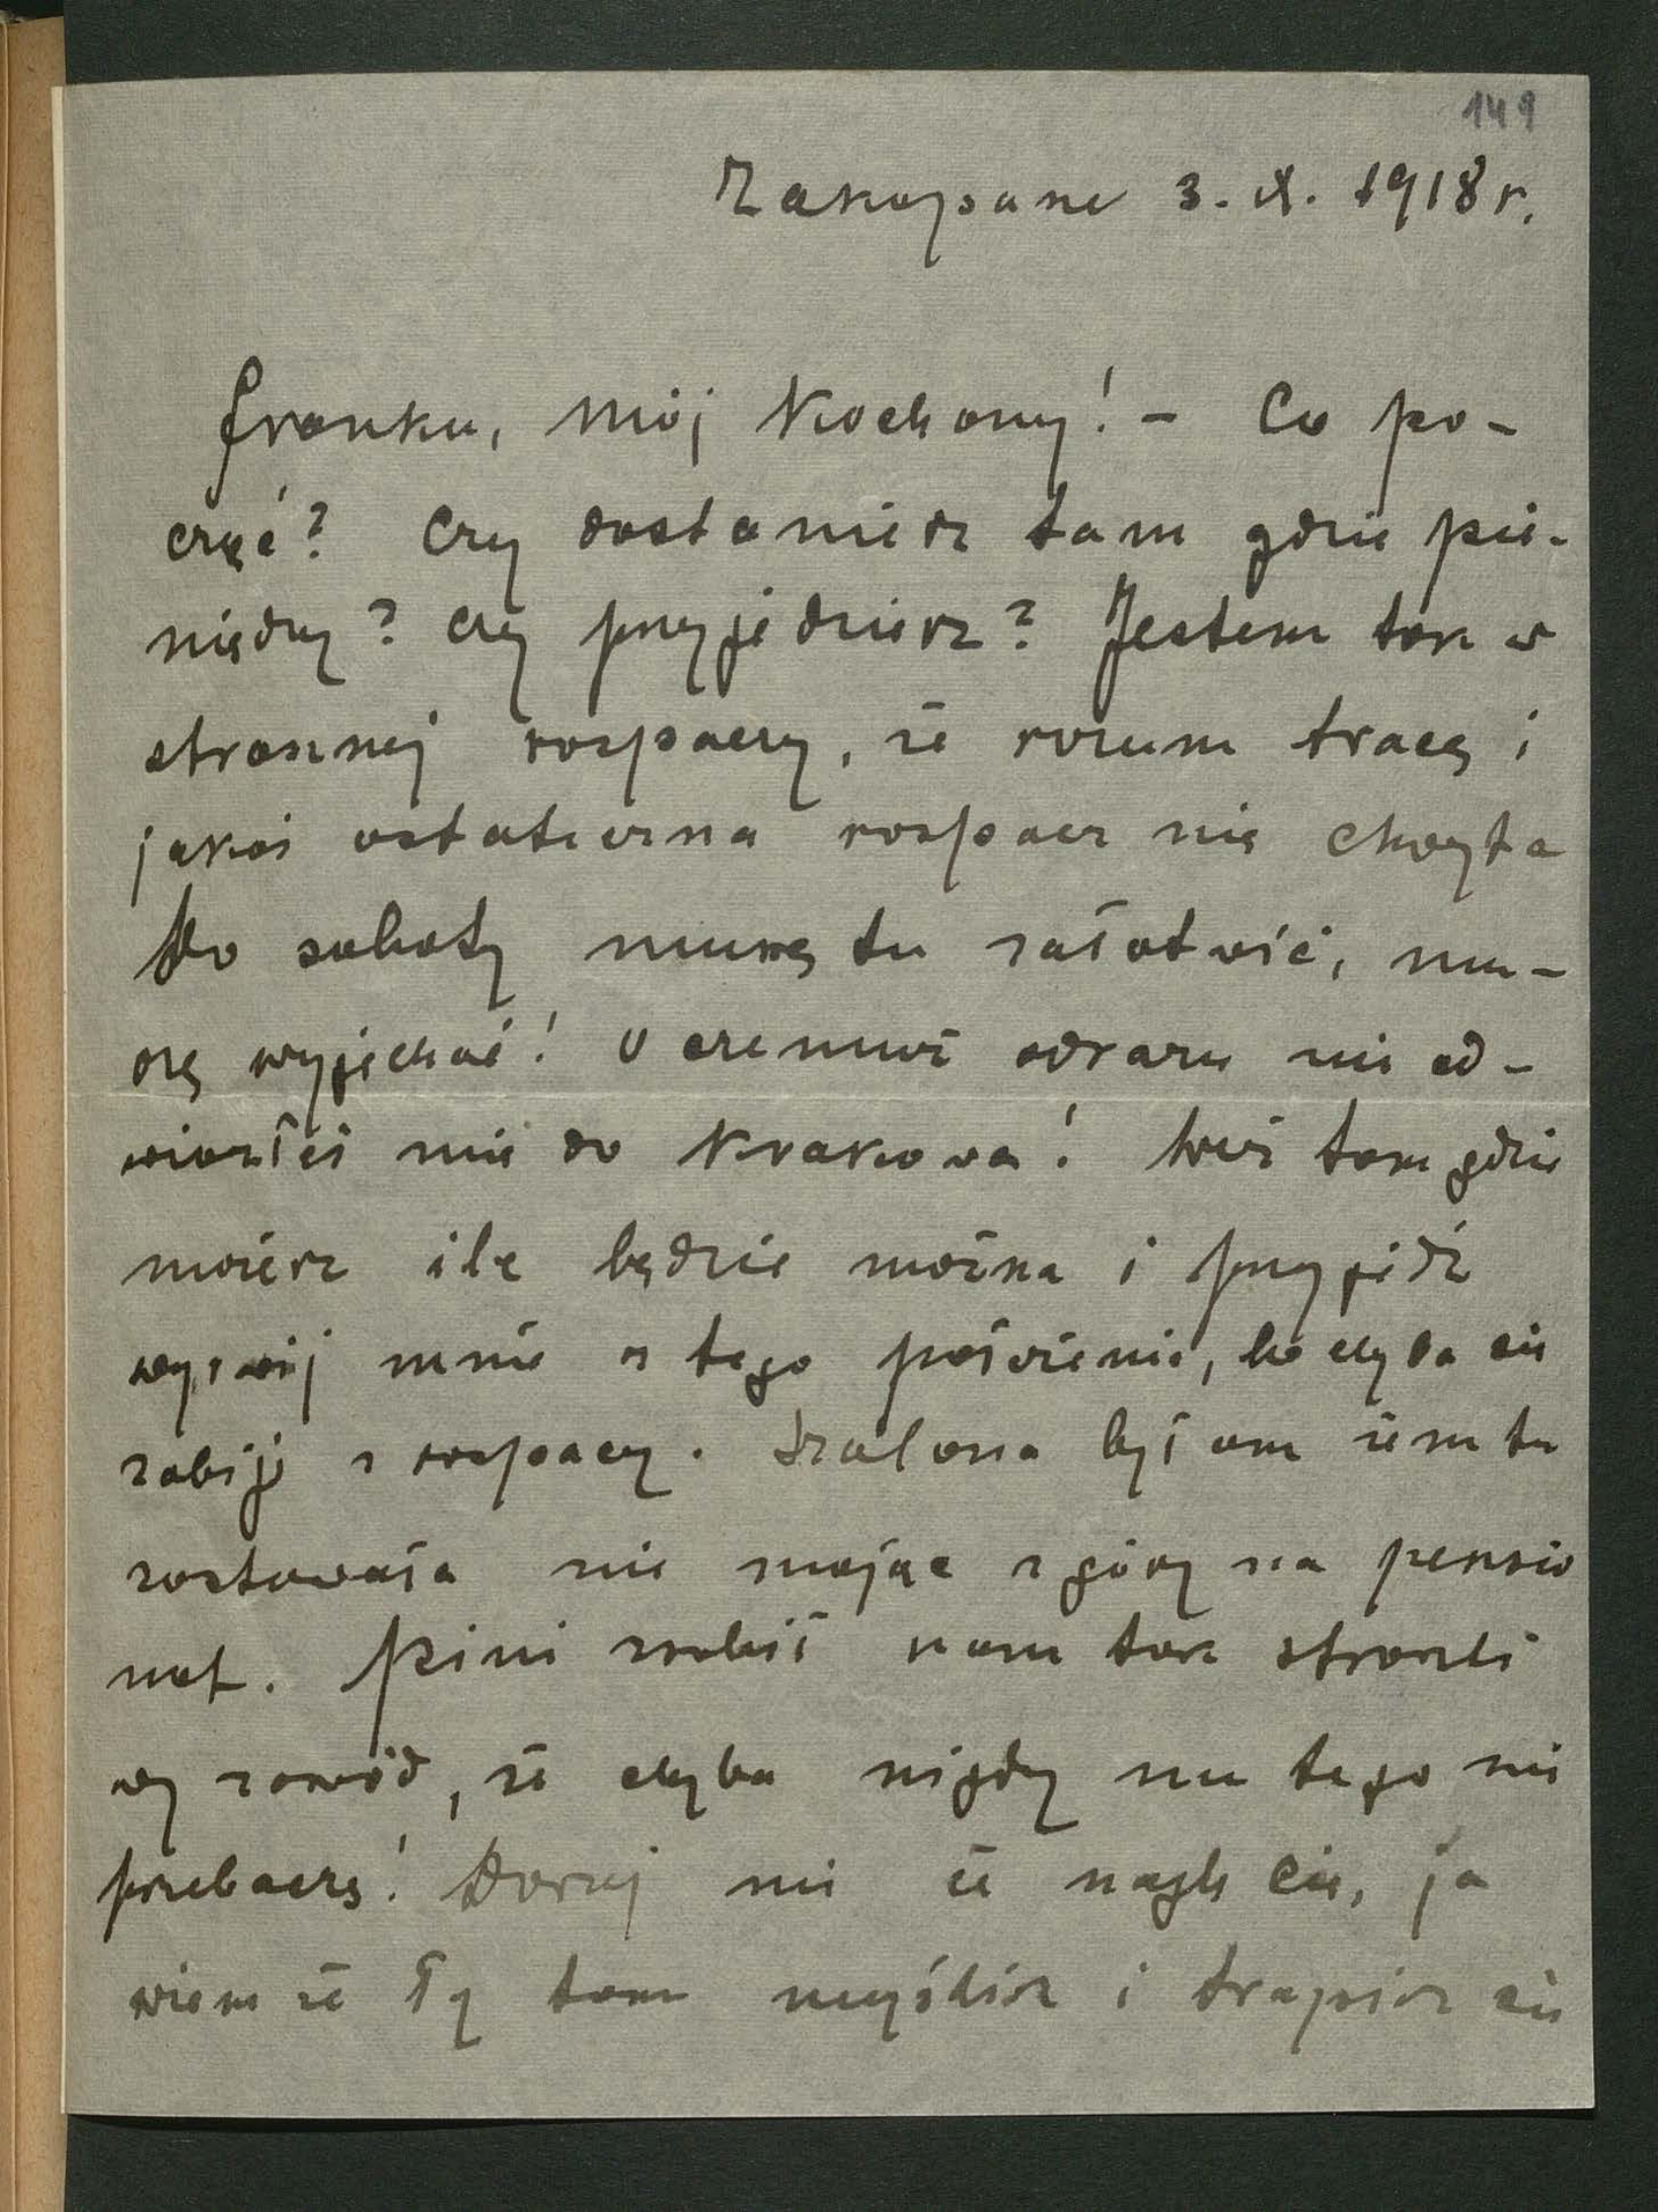 149
Zakopane 3. X. 1918 r.
Franku, mój Kochany! – Co po-
cząć? Czy dostaniesz tam gdzie pie-
niędzy? Czy przyjedziesz? Jestem tak w
strasznej rozpaczy, że rozum tracę i
jakaś ostateczna rozpacz mię chwyta
Do soboty muszę tu załatwić, mu-
szę wyjechać! O czemuż odrazu nie od-
wiozłeś mię do Krakowa! Weź tam gdzie
możesz ile będzie można i przyjedź
wyrwij mnie z tego położenia, bo chyba się
zabiję z rozpaczy. Szalona byłam żem tu
zostawała nie mając z góry na pensjo
nat. Pini zrobił nam tak straszli
wy zawód, że chyba nigdy mu tego nie
przebaczę! Daruj mi że naglę Cię, ja
wiem że Ty tam myślisz i trapisz się